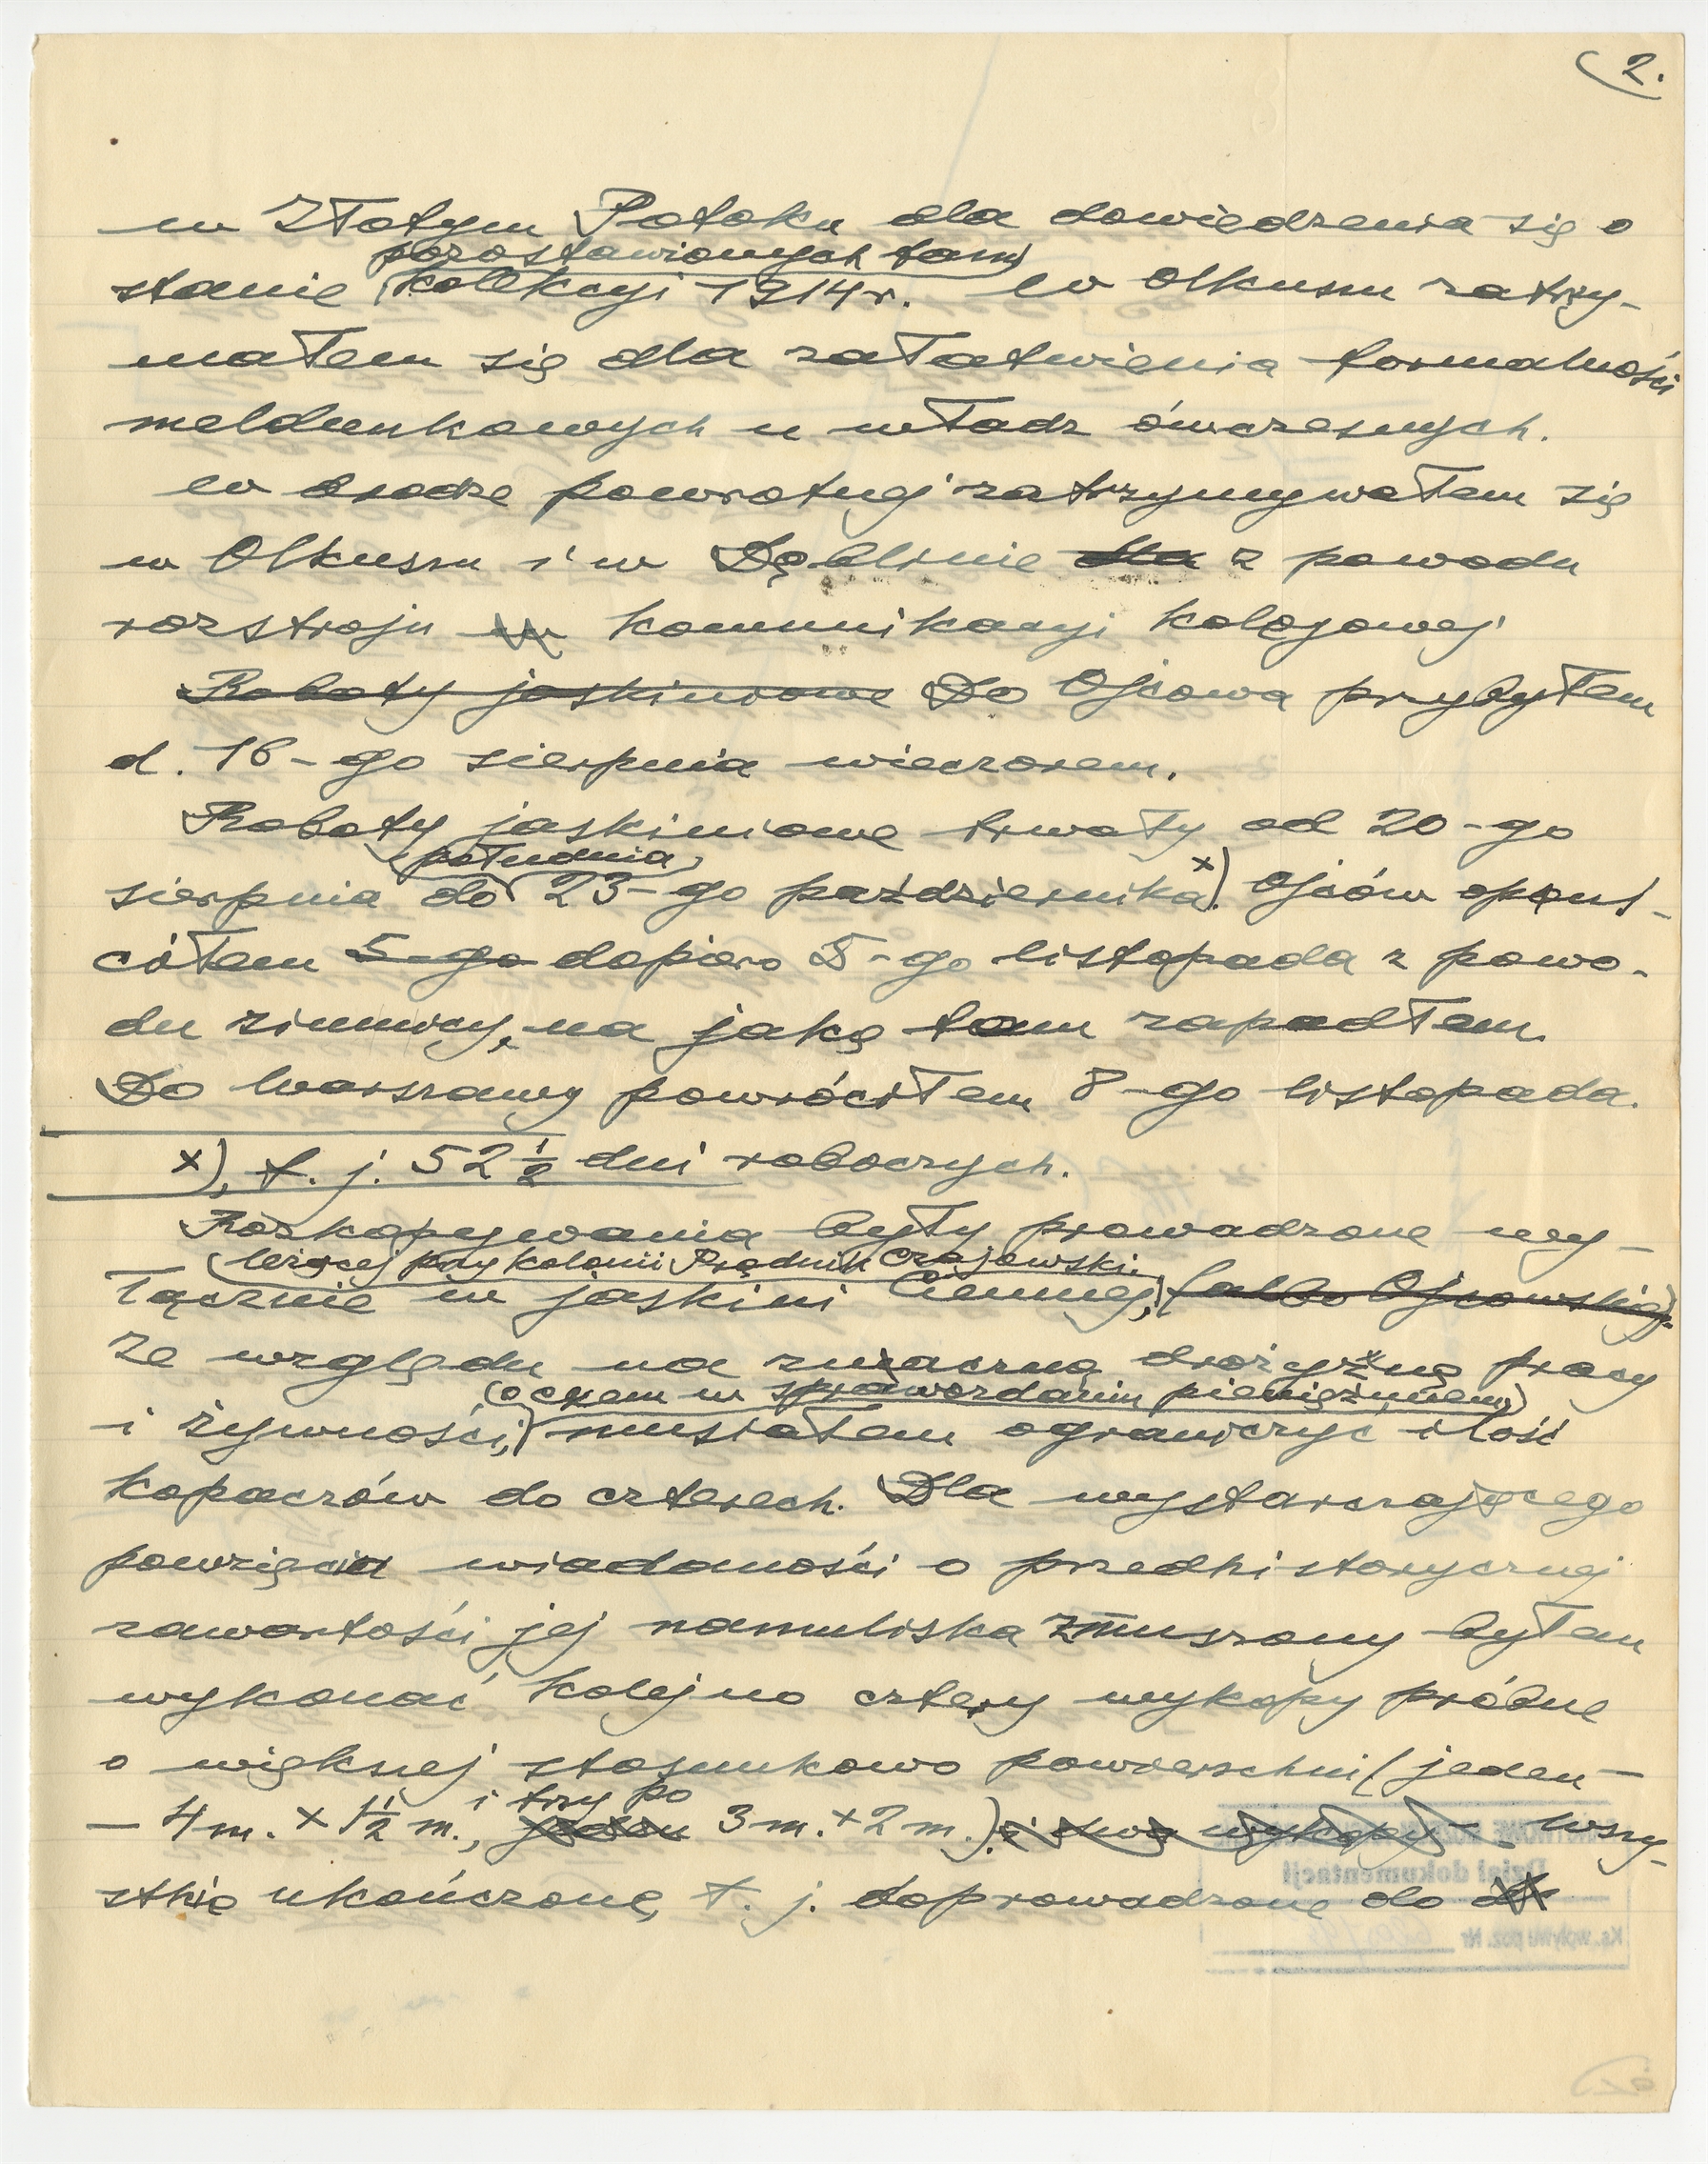 2.
w Złotym Potoku dla dowiedzenia się o
pozostawionych tam
stanie kolekcyi 1914 r. W Olkuszu zatrzy-
małem się dla załatwienia formalności
meldunkowych u władz ówczesnych.
W drodze powrotnej zatrzymywałem się
w Olkuszu i w Dęblinie dla z powodu
rozstroju w komunikacyi kolejowej
Roboty jaskiniowe Do Ojcowa przybyłem
d. 16-go sierpnia wieczorem.
Roboty jaskiniowe trwały od 20-go
południa
sierpnia do 23-go października x). Ojców opuś-
ciłem 5-go dopiero 5-go listopada z powo-
du zimnicy, na jaką tam zapadłem.
Do Warszawy powróciłem 8-go listopada.
x), t. j. 52 1/2 dni roboczych.
Rozkopywania były prowadzone wy-
leżącej przy kolonii Prądnik Czajowski.
łącznie w jaskini Ciemnej, (albo Ojcowskiej).
Ze względu na znaczną drożyznę pracy
(o czem w sprawozdaniu pieniężnem)
i żywności, musiałem ograniczyć ilość
kopaczów do czterech. Dla wystarczającego
powzięcia wiadomości o przedhistorycznej
zawartości jej namuliska zmuszony byłem
wykonać kolejno cztery wykopy próbne
o większej stosunkowo powierzchni (jeden –
i trzy po
– 4 m. x 1 1/2 m., jeden 3 m. x 2 m.). i dwa wykopy –. Wszy-
stkie ukończone, t. j. doprowadzone do
Dział dokumentacji
Ks. wpływu poz. Nr